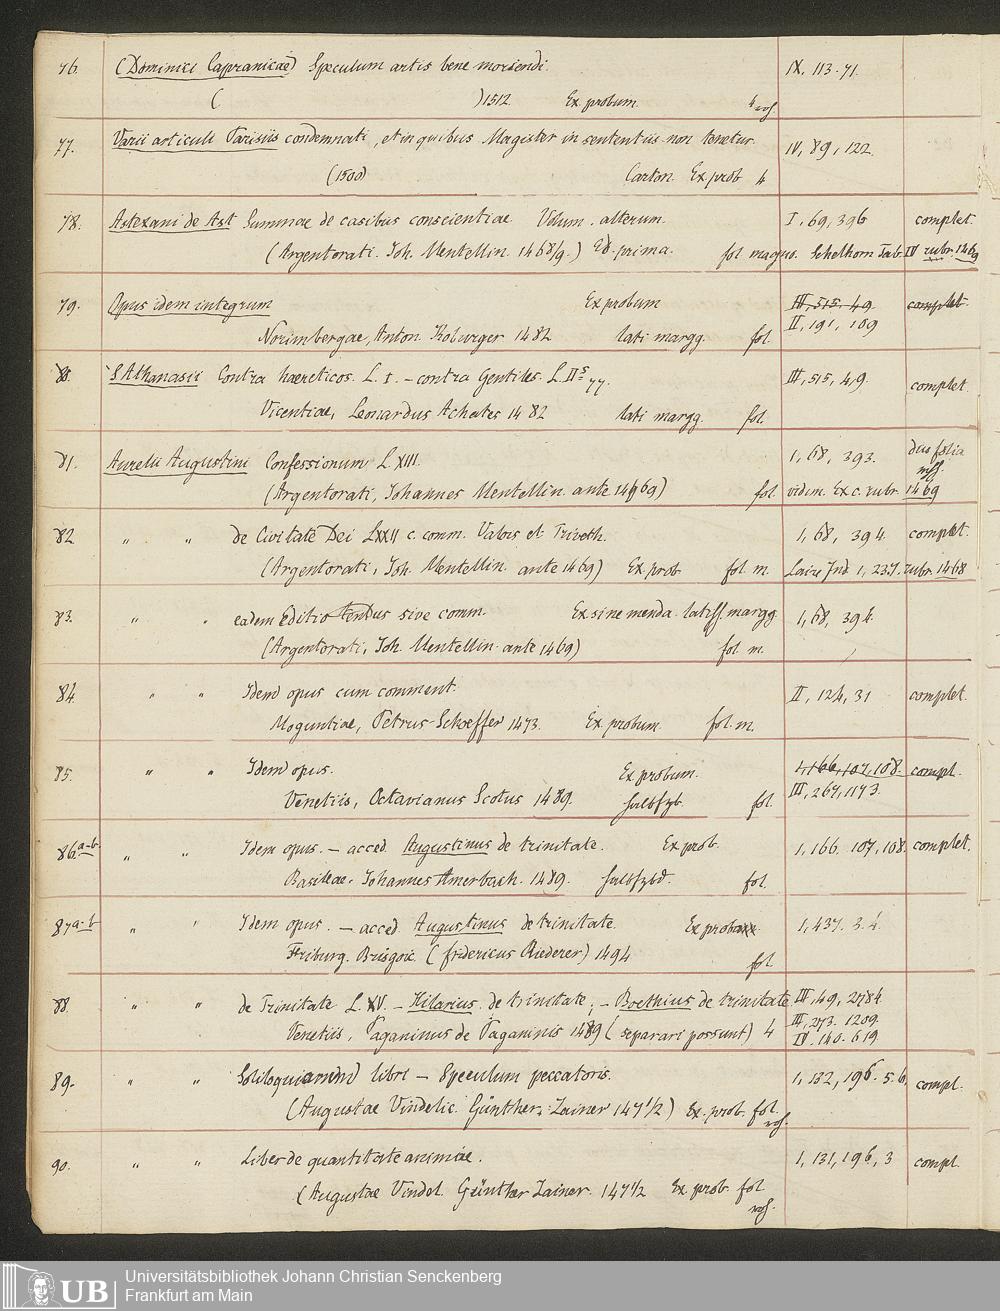 76. (Dominici Capranicae) Speculum artis bene moriendi. IX. 113. 71.
( ) 1512. Ex probum. 4
77. Varii articuli Parisiis condemnati, et in quibus Magister in sententiis non tenetur. IV, 89, 122.
(1500) Carton. Ex prob 4
78. Astexani de Ast Summae de casibus conscientiae. Volum. alterum. I, 69, 396 complet.
(Argentorati. Joh. Mentellin. 1468/9.) Ed. prima. fol magno. Schelhorn Tab. IV rubr. 1469
79. Opus idem integrum Ex probum III, 515, 49. complet
Norimbergae, Anton Koburger 1482 lati margg. fol. II, 191, 109
80. S Athanasii Contra haereticos. L. I. – contra Gentiles. L. II 77. III, 515, 49. complet.
Vicentiae, Leonardus Achates 1482 lati margg. fol.
81. Aurelii Augustini Confessionum L. XIII. 1, 68, 393. duo folia
mss.
(Argentorati, Johannes Mentellin. ante 1469) fol vidim. Ex c. rubr. 1469
82 " " de Civitate Dei L XXII c. comm. Valois et Triveth. 1, 68, 394. complet.
(Argentorati, Joh. Mentellin. ante 1469) Ex prob fol. m. Laire Ind. 1, 237. rubr. 1468
83. " " eadem Editio sive comm. Ex sine menda. latiss. margg. 1, 68, 394.
(Argentorati, Joh. Mentellin. ante 1469) fol. m.
84. " " Idem opus cum comment. II, 124, 31 complet.
Moguntiae, Petrus Schoeffer 1473. Ex probum. fol. m.
85. " " Idem opus. Ex probum. 1, 166, 107, 108. compl.
Venetiis, Octavianus Scotus 1489. halbfzb. fol. III, 267, 1173.
86. a-b " " Idem opus. – acced. Augustinus de trinitate. Ex prob. 1, 166. 107, 108. complet.
Basileae. Johannes Amerbach. 1489. halbfzbd. fol.
87 a-b " " Idem opus. – acced. Augustinus de trinitate. Ex prob 1, 437. 3. 4.
Friburg. Brisgoic. (fridericus Riederer) 1494 fol.
88. " " de Trinitate L. XV. – Hilarius de trinitate; – Boethius de trinitate III, 49, 2784
Venetiis, Paganinus de Paganinis 1489 (separari possunt) 4 III, 273. 1209.
IV. 140. 619.
89. " " libri – Speculum peccatoris. 1, 132, 196. 5. 6. compl.
(Augustae Vindelic. Günther. Zainer 1471/2) Ex. prob. fol.
90. " " Liber de quantitate animae. 1, 131, 196, 3 compl.
(Augustae Vindel. Günther Zainer. 1471/2 Ex prob. fol
UB Universitätsbibliothek Johann Christian Senckenberg
Frankfurt am Main